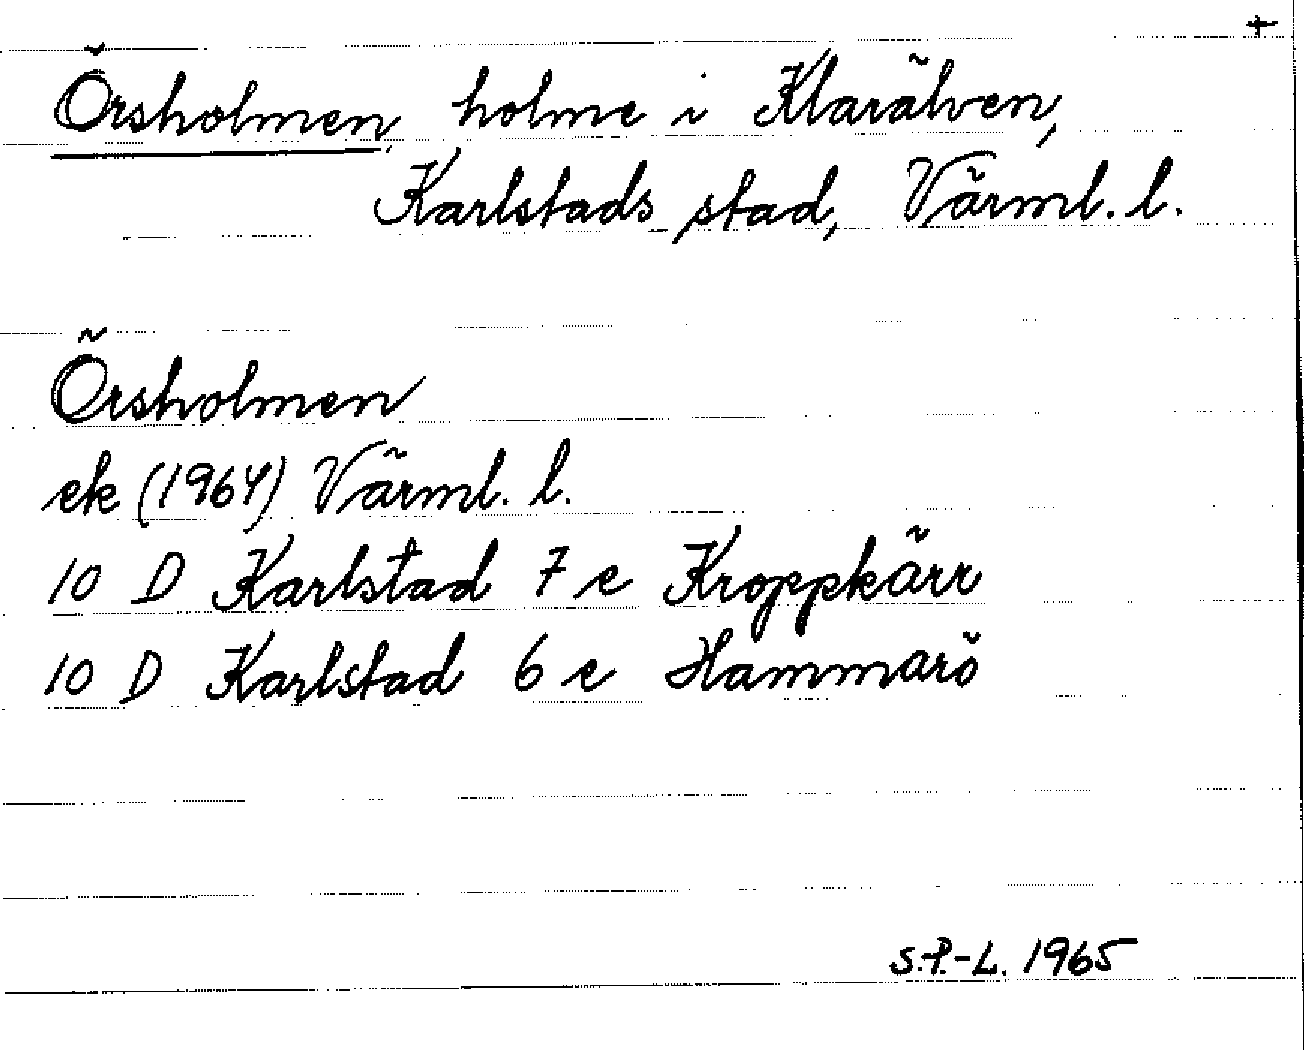 +
Örsholmen, holme i Klarälven,
Karlstads stad, Värml. l.
Örsholmen
ek (1964) Värml. l.
10 D Karlstad 7 e Kroppkärr
10 D Karlstad 6 e Hammarö
S.P.-L. 1965